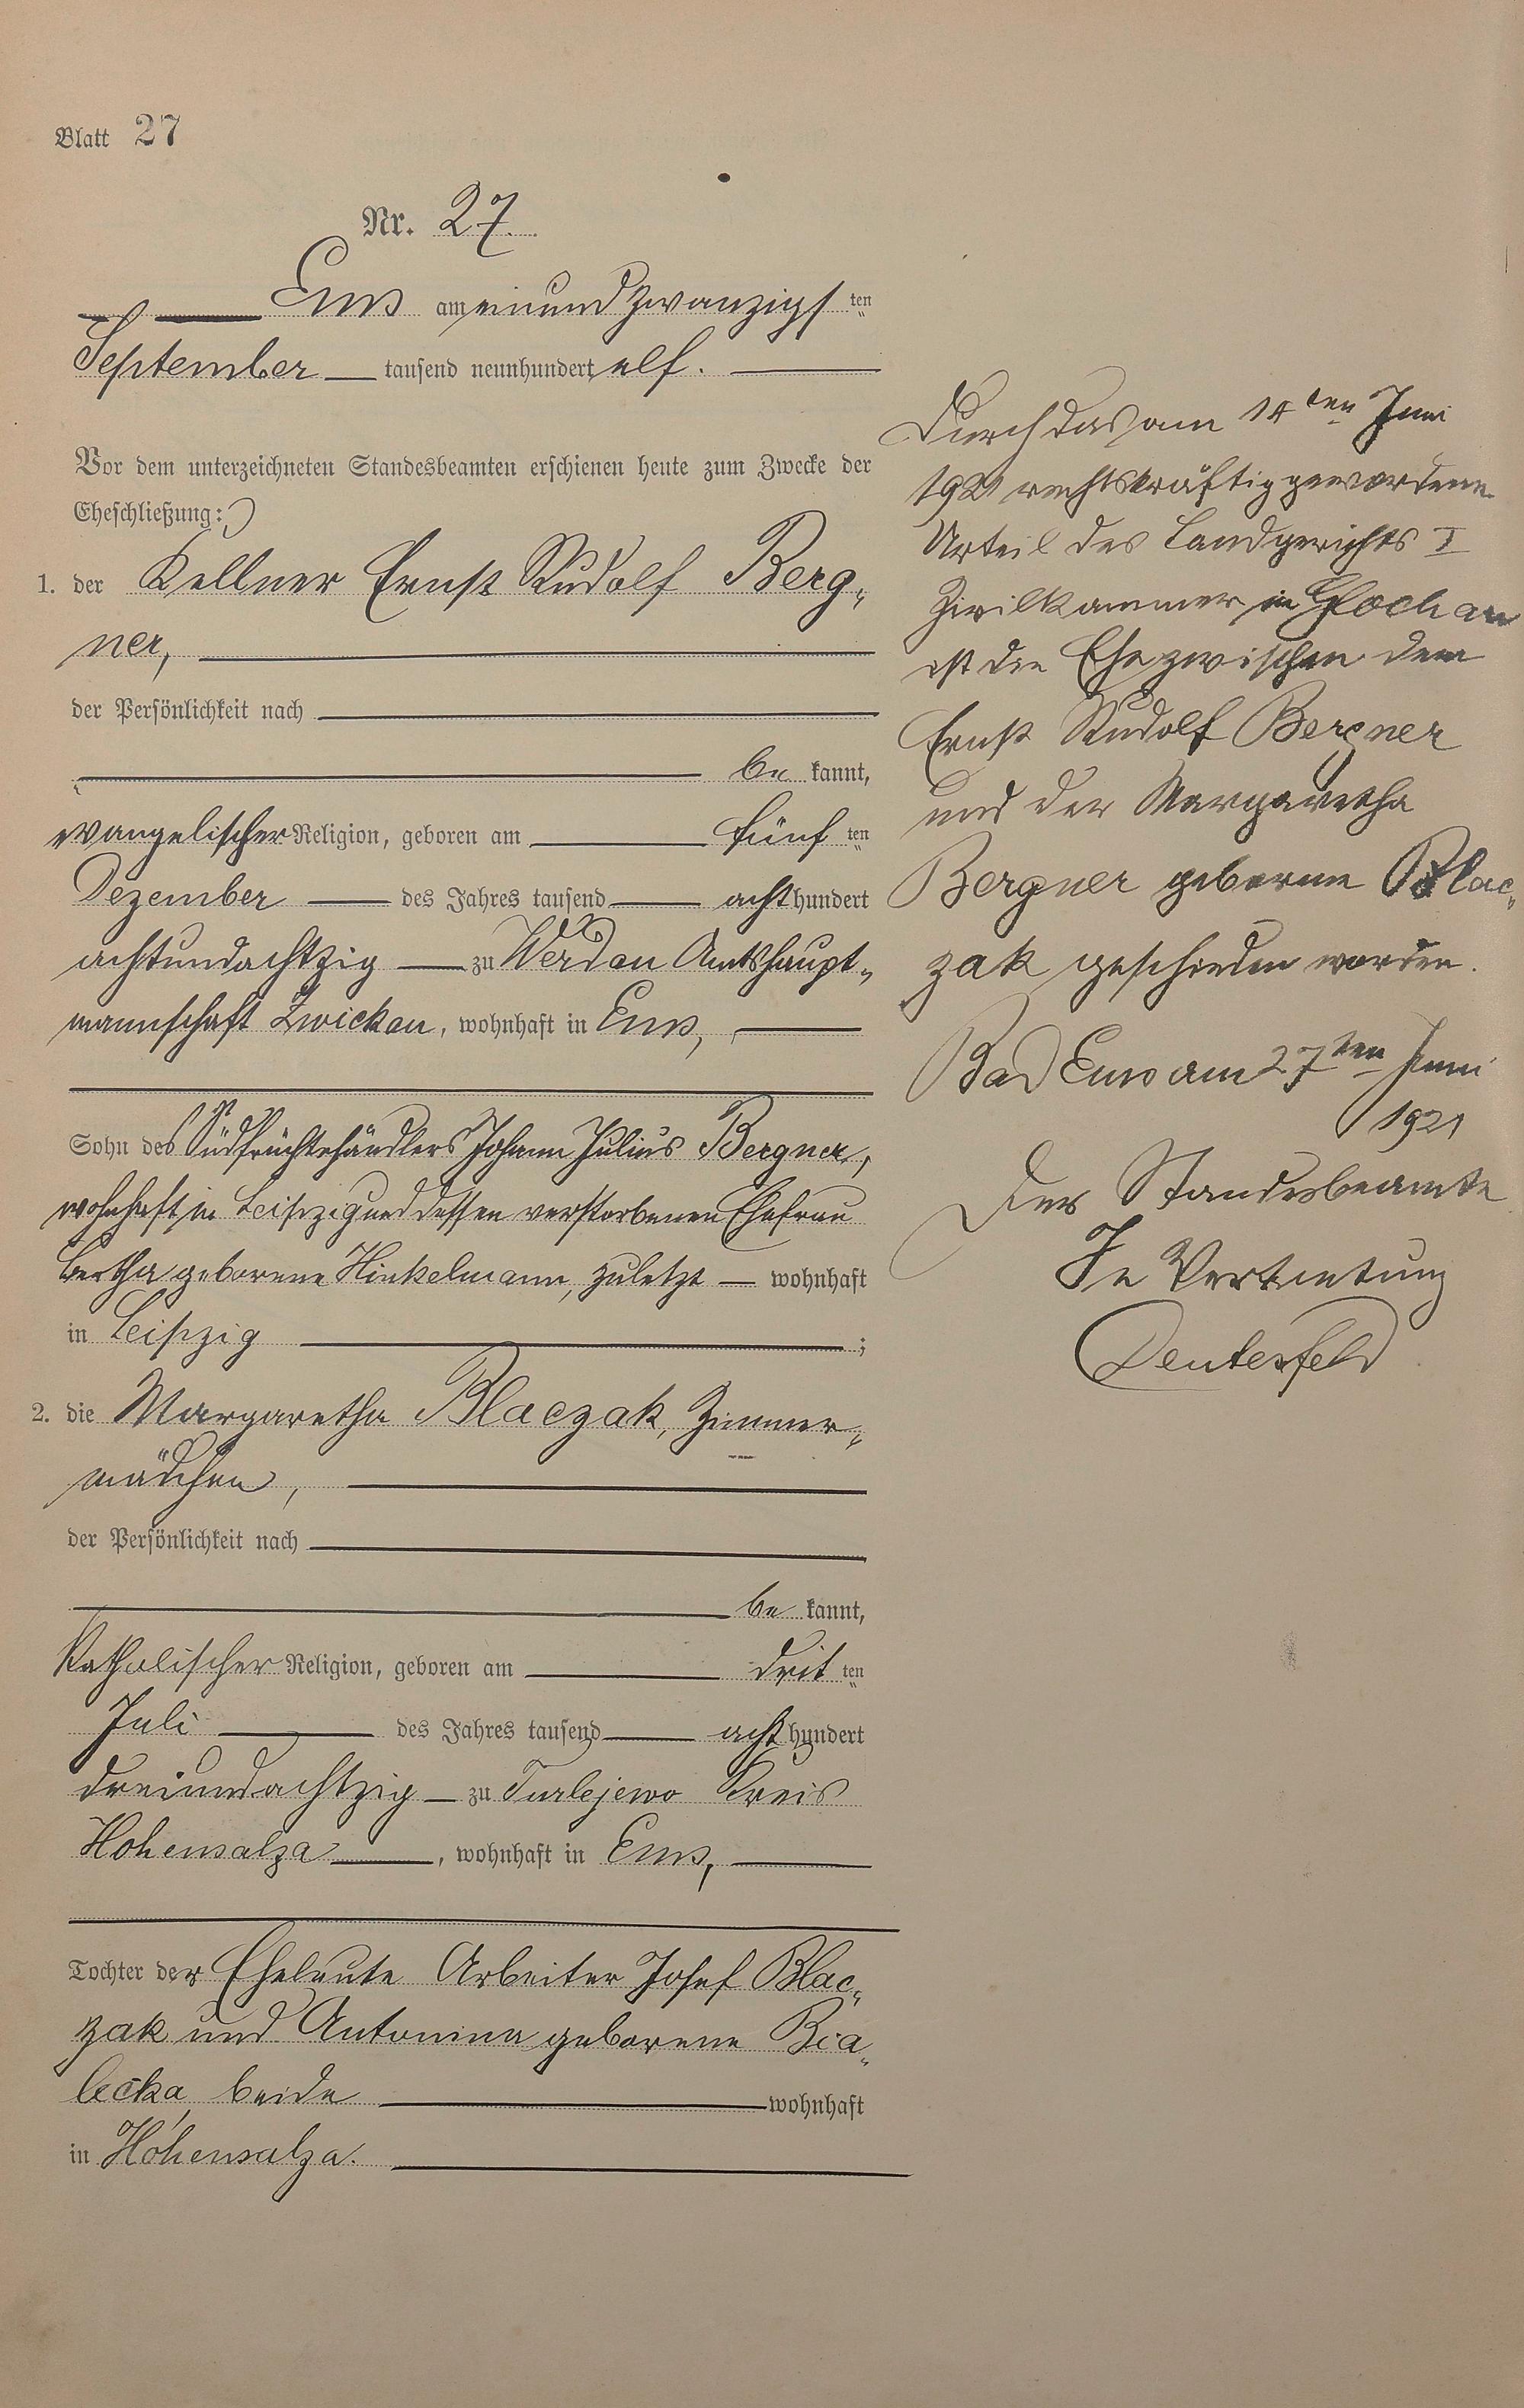 Blatt 27
Nr. 27.
Ems am einundzwanzigsten
September tausend neunhundert elf.
Vor dem unterzeichneten Standesbeamten erschienen heute zum Zwecke der
Eheschließung:
1. der Kellner Ernst Rudolf Berg-
ner,
der Persönlichkeit nach
be kannt,
evangelischer Religion, geboren am fünf ten
Dezember des Jahres tausend acht hundert
achtundachtzig zu Werdau Amtshaupt-
mannschaft Zwickau, wohnhaft in Ems,
Sohn des Südfrüchtehändlers Johann Julius Bergner,
wohnhaft in Leipzig und dessen verstorbenen Ehefrau
Bertha geborene Hinkelmann, zuletzt wohnhaft
in Leipzig ;
2. die Margaretha Blaczak, Zimmer-
mädchen,
der Persönlichkeit nach
be kannt,
katholischer Religion, geboren am drit ten
Juli des Jahres tausend acht hundert
dreiundachtzig zu Turlejewo Kreis
Hohensalza, wohnhaft in Ems,
Tochter der Eheleute Arbeiter Josef Blac-
zak und Antonina geborene Bia-
lecka, beide wohnhaft
in Hohensalza.
Durch das am ten Juni
1921 rechtskräftig gewordene
Urteil des Landgerichts I
Zivilkammer in
ist die Ehe zwischen dem
Ernst Rudolf Bergner
und der Margaretha
Bergner geborene Blac-
zak geschieden worden.
Bad Ems am 27ten Juni
1921
Der Standesbeamte
In Vertretung